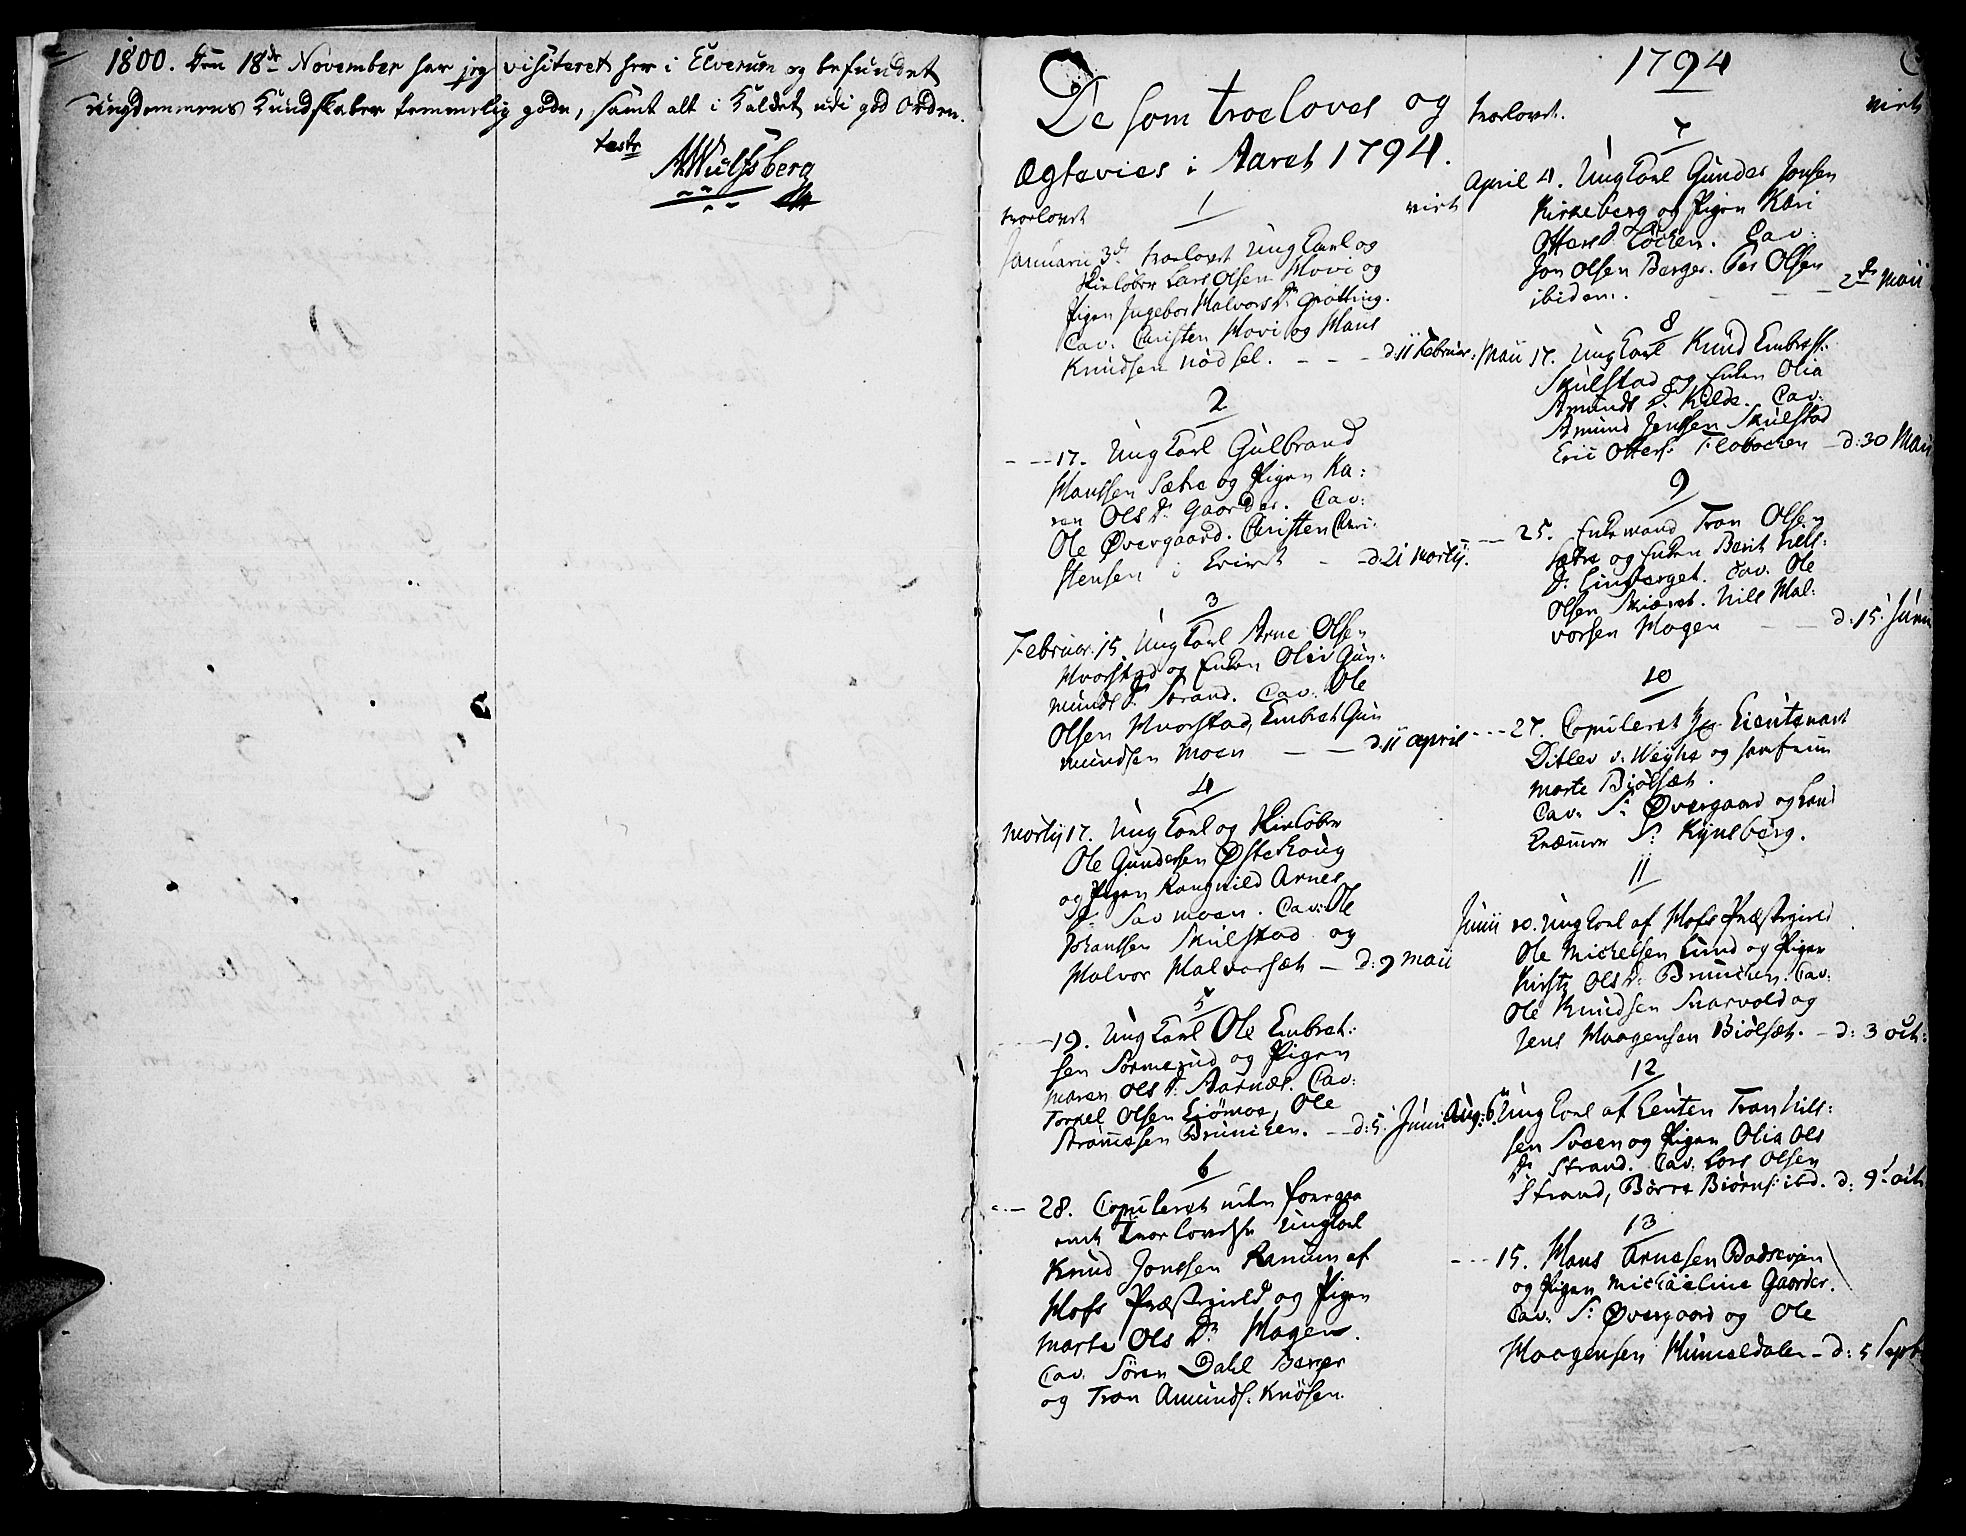 1800. Den 18de November har jeg visiteret her i Elverum og befundet
Ungdommens Kundskaber temmelig gode, samt alt i Kaldet udi god Orden.
test
AWulfsberg
De som troeloves og
ægtevies i Aaret 1794.
troelovet
viet
1
Januarii 3d. troelovet Ung Karl og
Skieløber Lars Olsen Hovi og
Pigen Ingebor Halvors D. Grøtting.
Cav: Christen Hovi og Hans
Knudsen Nødsel. - - - d. 11 Februar.
2
- - - 17. Ung Karl Gulbrand
Hanssen Sætre og Pigen Ka:
ren Ols D. Gaarder. Cav:
Ole Øvergaard. Christen Chri-
stensen i - d. 21 Martij.
3
Februar. 15. Ung Karl Arne Olsen
Hvorstad og Enken Oliv Gun:
munds D. Strand. Cav: Ole
Olsen Hvorstad, Embret Gun
mundsen Moen - - d. 11 April
4
Martij 17. Ung Karl og Skieløber
Ole Gundersen Østehoug
og Pigen Rangnild Arnes
D. Savmoen. Cav: Ole
Johanssen Skulstad og
Halvor Halvorsæt - d: 9 Maii
5
- - - 19. Ung Karl Ole Embret:
sen Sormerud og Pigen
Maren Ols D. Aarnæs. Cav:
Torkel Olsen Liømoe, Ole
Strømssen Grundsen. - d: 5. Junii
6
- - - 28. Copuleret uden foregaa
ende Troelovelse Ung Karl
Knud Jonssen Ranum af
Hofs Præstegield og Pigen
Marte Ols D. Hagen.
Cav. Sören Dahl Berger
og Tron Amunds: Knøsen.
1794
troelovet.
viet
7
April 4. Ung Karl Gunder Jonsen
Kirkeberg og Pigen Kari
Otters D. Løcken. Cav:
Jon Olsen Berger. Per Olsen
ibidem. - - - 2de Maii
8
Maii 17. Ung Karl Knud Embrets:
Skulstad og Enken Olia
Amunds D. Kilde. Cav:
Amund Jenssen Skulstad
Eric Otters: Flobacken - d: 30 Maii
9
- - - 25. Enkemand Tron Olsen
Sætre og Enken Berit Nils:
D. Lindberget. Cav. Ole
Olsen Skiæret. Nils Hal-
vorsen Hagen - - d: 15. Junii
10
- - - 27. Copuleret Hr Lieutenant
Ditlev v: Weyhe og Jomfrue
Marte Biølset.
Cav: Sr Øvergaard og Land
Kræmmer Sr Kynsberg.
11
Junii 20. Ung Karl af Hofs Præstegield
Ole Michelsen Lund og Pigen
Kirsti Ols D. Cav:
Ole Knudsen Snarvold og
Jens Haagensen Biølset. - d: 3 Oct:
12
Aug: 6. Ung Karl af Leuten Tron Nils:
sen Svaen og Pigen Olia Ols
D. Strand. Cav: Lars Olsen
Strand, Børre Biørns: ibd. d: 9. Oct.
13
- - - 15. Hans Arnesen
og Pigen Michaeline Gaarder.
Cav: Sr Øvergaard og Ole
Haagensen Hummeldalen - d: 5 Sept.